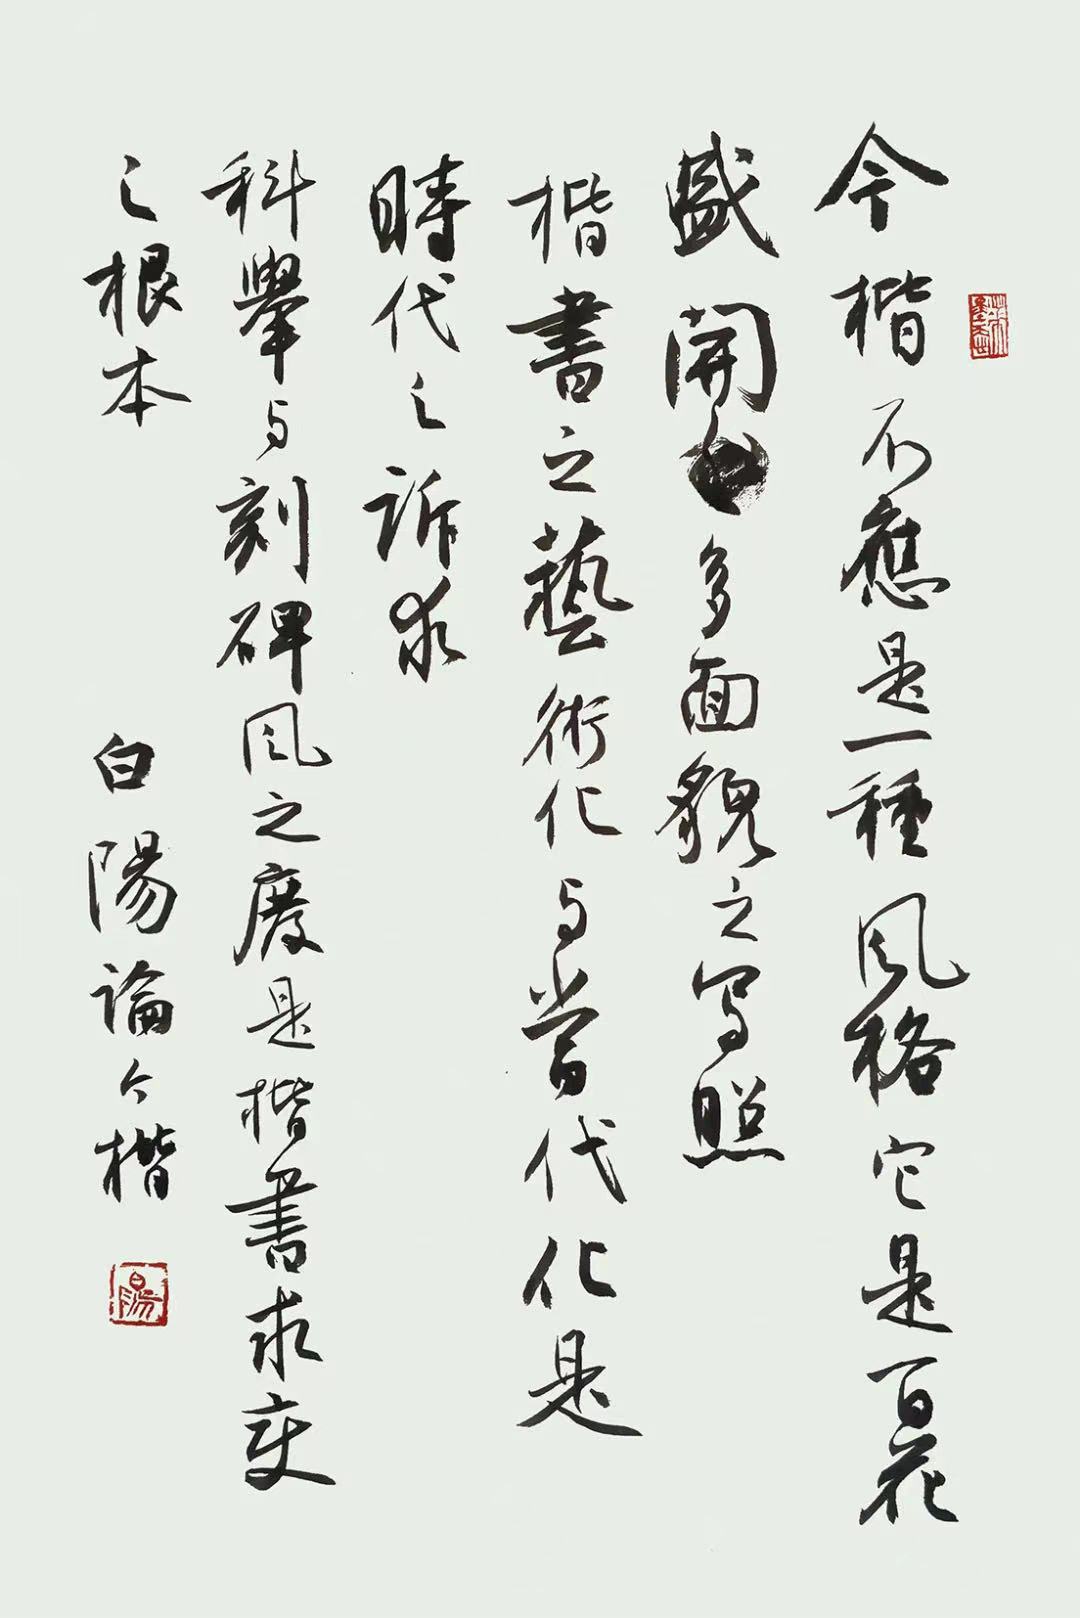 今楷不應是一種風格它是百花
盛開多面貌之写照
楷書之藝術化与當代化是
時代之訴求
科舉与刻碑風之廢是楷書求变
之根本 白陽論今楷